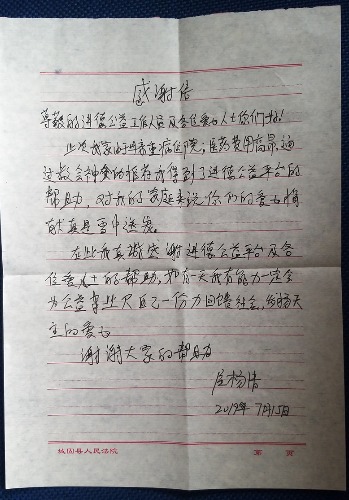 感谢信
尊敬的进德公益工作人员及各位爱心人士你们好!
此次我家的母亲重病住院,医药费用高昂,通
过教会神父的推荐我得到了进德公益平台的
帮助,对我的家庭来说你们的爱心捐
献真是雪中送炭。
在此我真诚感谢进德公益平台及各
位爱心人士的帮助,我有能力一定会
为公益事业尽自己一份力回馈社会,
主的爱心
谢谢大家的帮助
2019年7月15日
城固县人民法院 第 页